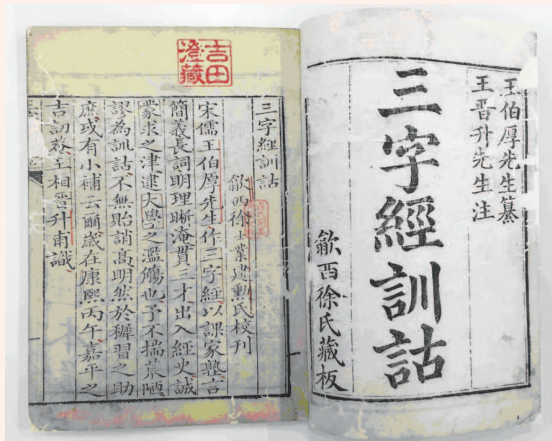 王伯厚先生纂
王晋升先生注
三字經訓詁
歙西徐氏藏板
吉田
澄藏
三字經訓詁
歙西徐士業建勳氏校刊
宋儒王伯厚先生作三字經以課家塾言
簡義長詞明理晰淹貫三才出入經史誠
蒙求之津逮大學之濫觴也予不揣荒陋
謬為訓詁不無貽誚高明然於稺習之助
庶或有小補云爾歲在康熙丙午嘉平之
吉訒菴王相晉升甫識